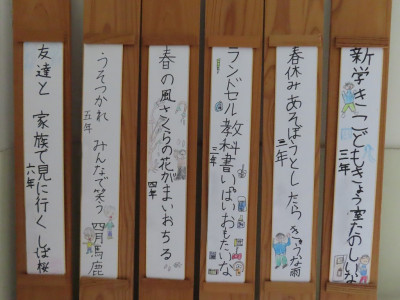 新学き こどもきょう室 たのしいな
三年
春休み あそぼうとしたら きゅうな雨
三年
ランドセル 教科書いっぱい おもたいな
三年
春の風 さくらの花が まいおちる
四年
うそつかれ みんなで笑う 四月馬鹿
五年
友達と 家族で見に行く しば桜
六年